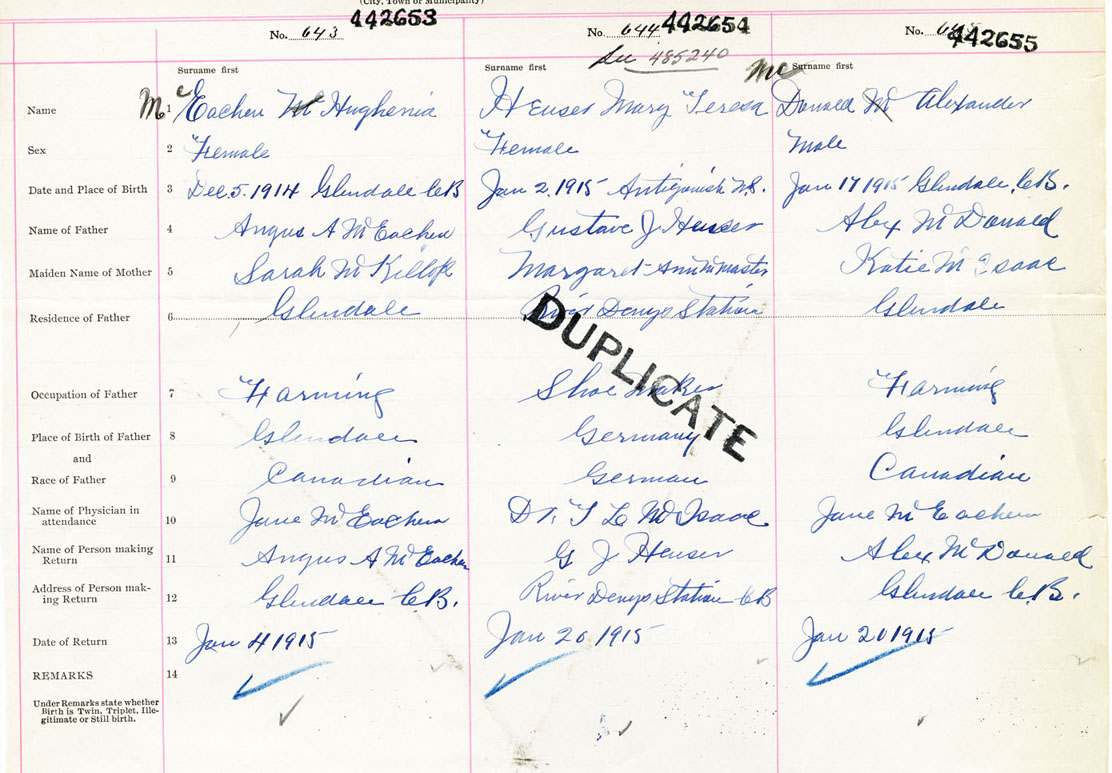 (City, Town or Municipality)
No. 643 442653
No. 644 442654
No. 442655
See 485240
Surname first
Surname first
Mc Surname first
Name 1 Mc Eachen Mc Hughenia
Heuser Mary Teresa
Donald Mc Alexander
Sex 2 Female
Female
Male
Date and Place of Birth 3 Dec. 5. 1914 Glendale C.B
Jan 2. 1915 Antigonish N.S.
Jan 17 1915 Glendale, C.B.
Name of Father 4 Angus A McEachen
Gustave J Heuser
Alex McDonald
Maiden Name of Mother 5 Sarah McKillop
Margaret Ann McMaster
Katie McIsaac
Residence of Father 6 Glendale
River Denys Station
Glendale
DUPLICATE
Occupation of Father 7 Farming
Shoe Maker
Farming
Place of Birth of Father 8 Glendale
Germany
Glendale
and
Race of Father 9 Canadian
German
Canadian
Name of Physician in
attendance 10 Jane McEachern
Dr. McIsaac
Jane McEachern
Name of Person making
Return 11 Angus A McEachen
G J Heuser
Alex McDonald
Address of Person mak-
ing Return 12 Glendale C.B.
River Denys Station C B
Glendale C.B.
Date of Return 13 Jan 4 1915
Jan 20 1915
Jan 20 1915
REMARKS 14
Under Remarks state whether
Birth is Twin, Triplet, Ille-
gitimate or Still birth.